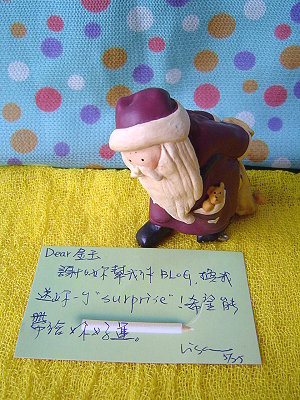 Dear 金玉
謝謝你幫我作 BLOG, 換我
送你一個 "surprise"! 希望能
帶給妳好運。
Lisa
5/25